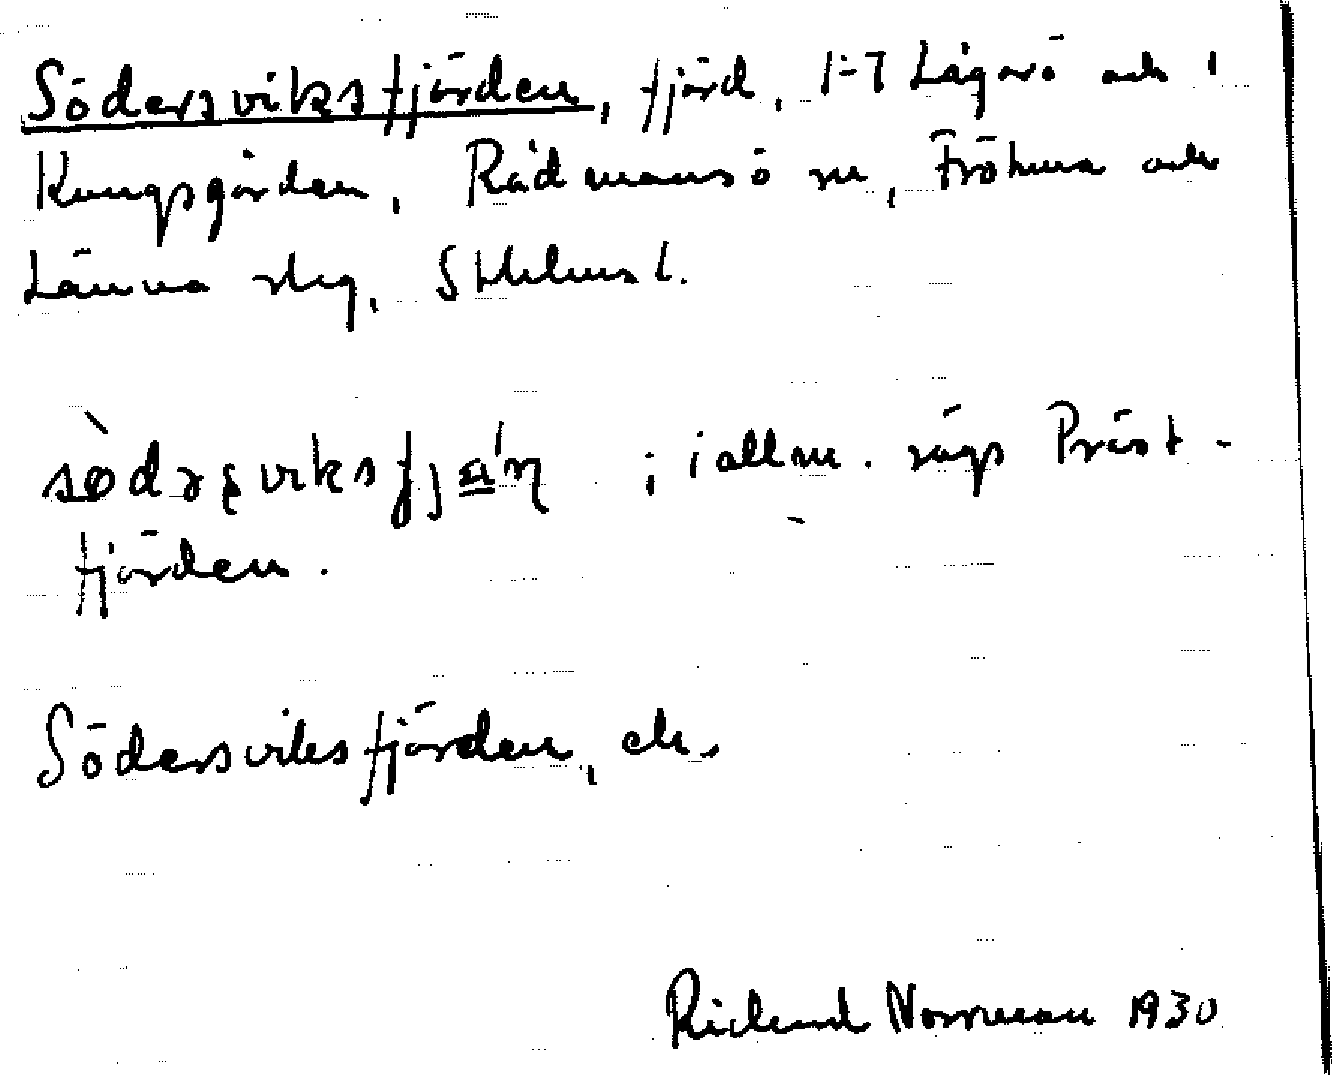 Södersviksfjärden, fjärd, 1-7 Lågarö och 1
Kungsgården, Rådmansö sn, Fröhuna och
Länna slg, Sthlms l.
i allm. sägs Präst-
fjärden.
Södersviksfjärden, ek.
Rickard Norrman 1930